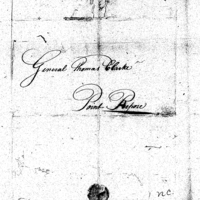 General Thomas Clarke
Point Repose
nc